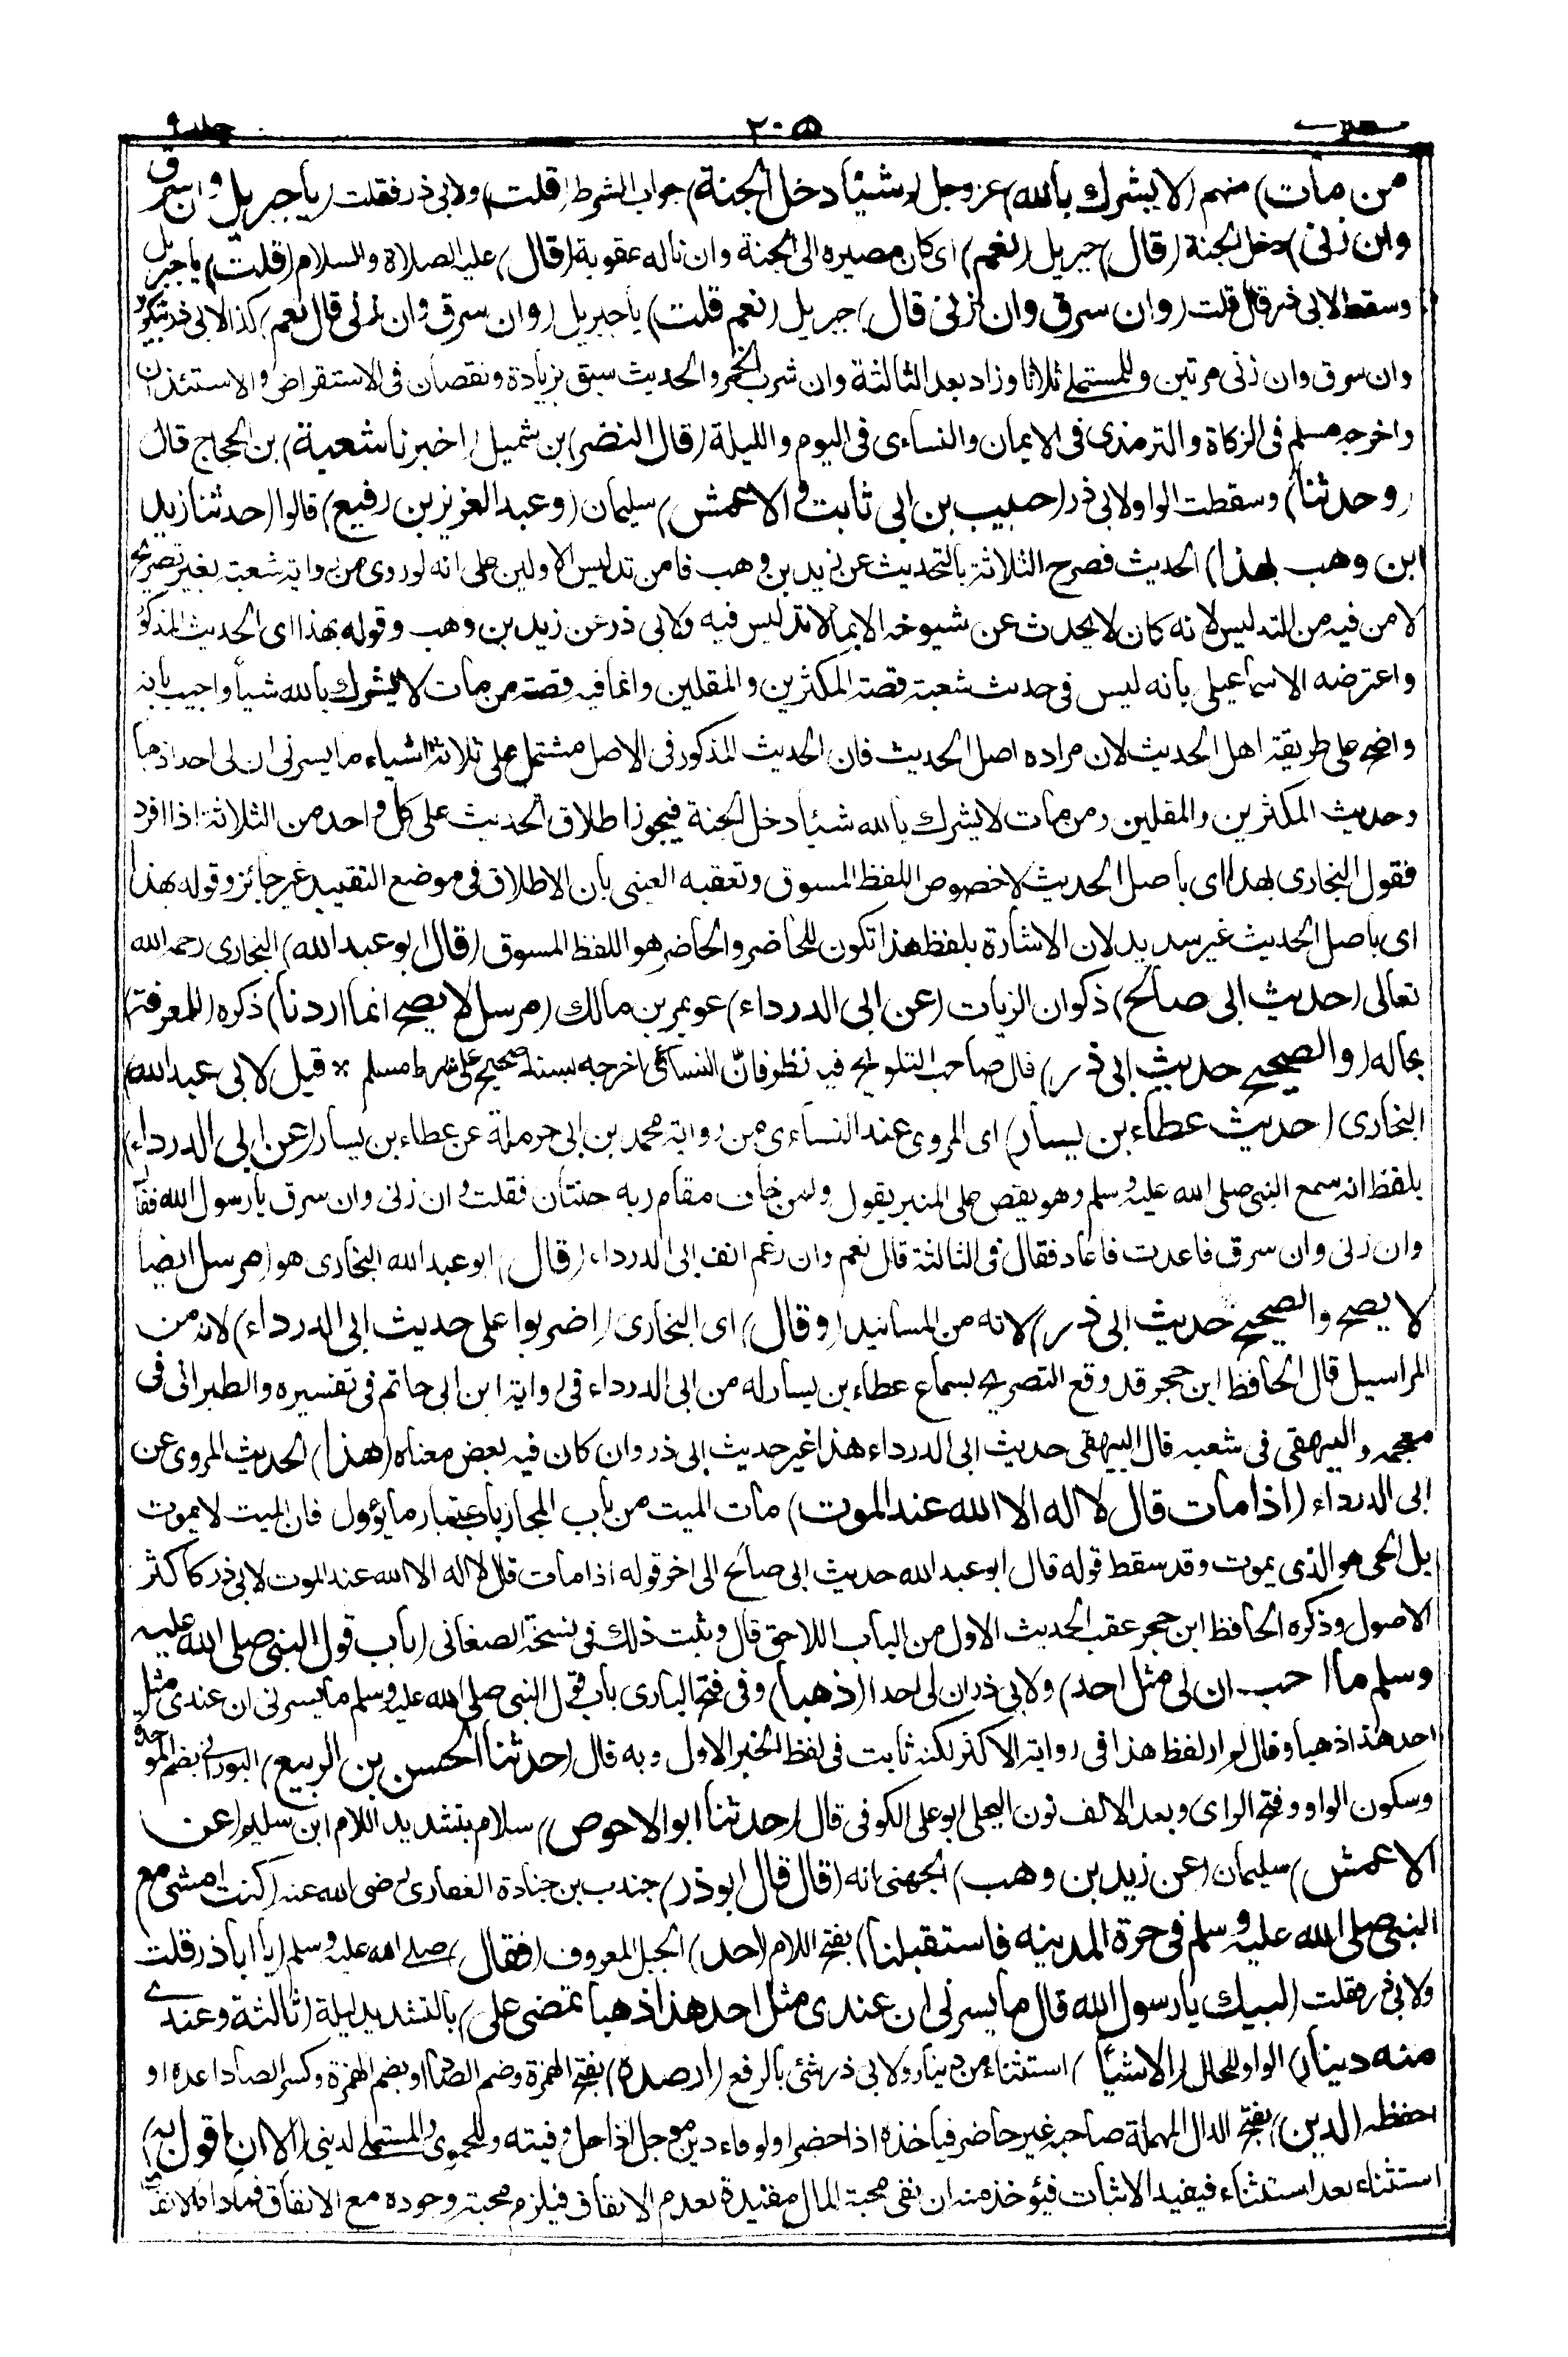 جلد ٩
٢٠٥
من مات) منهم (لا يشرك بالله) عز وجل (شيئا دخل الجنة) جواب الشرط (قلت) ولابي ذر فقلت (يا جبريل وان سرق
وان زنى) دخل الجنة (قال) جبريل (نعم) اى كان مصيره الى الجنة وان ناله عقوبة (قال) عليه الصلاة والسلام (قلت) يا جبريل
وسقط لابي ذر قال قلت (وان سرق وان زنى قال) جبريل (نعم قلت) يا جبريل (وان سرق وان زنى قال نعم) كذا لابي ذر بتكرير
وان سرق وان زنى مرتين وللمستملي ثلاثا وزاد بعد الثالثة وان شرب الخمر والحديث سبق بزيادة ونقصان فى الاستقراض والاستئذان
واخرجه مسلم فى الزكاة والترمذى فى الايمان والنساءى فى اليوم والليلة (قال النضر) بن شميل (اخبرنا شعبة) بن الحجاج قال
(وحدثنا) وسقطت الواو لابي ذر (حبيب بن ابى ثابت والاعمش) سليمان (وعبد العزيز بن رفيع) قالوا (حدثنا زيد
ابن وهب بهذا) الحديث فصرح الثلاثة بالتحديث عن زيد بن وهب فامن تدليس الاولين على انه لو روى من رواية شعبة بغير تصريح
لامن فيه من التدليس لانه كان لا يحدث عن شيوخه الا بما لا تدليس فيه ولابي ذر عن زيد بن وهب وقوله بهذا اى الحديث المذكور
واعترضه الاسماعيلى بانه ليس فى حديث شعبة قصة المكثرين والمقلين وانما فيه قصة من مات لا يشرك بالله شيأ واجيب بانه
واضح على طريقة اهل الحديث لان مراده اصل الحديث فان الحديث المذكور فى الاصل مشتمل على ثلاثة اشياء ما يسرنى ان لى احدا ذهبا
وحديث المكثرين والمقلين ومن مات لا يشرك بالله شيئا دخل الجنة فيجوز اطلاق الحديث على كل واحد من الثلاثة اذا افرد
فقول البخارى بهذا اى باصل الحديث لا خصوص اللفظ المسوق وتعقبه العينى بان الاطلاق فى موضع التقييد غير جائز وقوله بهذا
اى باصل الحديث غير سديد لان الاشارة بلفظ هذا تكون للحاضر والحاضر هو اللفظ المسوق (قال ابو عبد الله) البخارى رحمه الله
تعالى (حديث ابى صالح) ذكوان الزيات (عن ابى الدرداء) عويمر بن مالك (مرسل لا يصح انما اردنا) ذكره (للمعرفة)
بحاله (والصحيح حديث ابى ذر) قال صاحب التلويح فيه نظر فان النسائى اخرجه بسند صحيح على شرط مسلم * قيل لابى عبد الله)
البخارى (حديث عطاء بن يسار) اى المروى عند النساءى من رواية محمد بن ابى حرملة عن عطاء بن يسار (عن ابى الدرداء)
بلفظ انه سمع النبى صلى الله عليه وسلم وهو يقص على المنبر يقول ولمن خاف مقام ربه جنتان فقلت وان زنى وان سرق يا رسول الله فقال
وان زنى وان سرق فاعدت فاعاد فقال فى الثالثة قال نعم وان رغم انف ابى الدرداء (قال) ابو عبد الله البخارى هو (مرسل ايضا
لا يصح والصحيح حديث ابى ذر) لانه من المسانيد (وقال) اى البخارى (اضربوا على حديث ابى الدرداء) لانه من
المراسيل قال الحافظ ابن حجر قد وقع التصريح بسماع عطاء بن يسار له من ابى الدرداء فى رواية ابن ابى حاتم فى تفسيره والطبرانى فى
معجمه والبيهقى فى شعبه قال البيهقى حديث ابى الدرداء هذا غير حديث ابى ذر وان كان فيه بعض معناه (هذا) الحديث المروى عن
ابى الدرداء (اذا مات قال لا اله الا الله عند الموت) مات الميت من باب المجاز باعتبار ما يؤول فان الميت لا يموت
بل الحى هو الذى يموت وقد سقط قوله قال ابو عبد الله حديث ابى صالح الى اخر قوله اذا مات قال لا اله الا الله عند الموت لابى ذر كاكثر
الاصول وذكره الحافظ ابن حجر عقب الحديث الاول من الباب اللاحق قال وثبت ذلك فى نسخة الصغانى (باب قول النبى صلى الله عليه
وسلم ما احب ان لى مثل احد) ولابي ذر ان لى احدا (ذهبا) وفى فتح البارى باب قول النبى صلى الله عليه وسلم ما يسرنى ان عندى مثل
احد هذا ذهبا وقال لم ار لفظ هذا فى رواية الاكثر لكنه ثابت فى لفظ الخبر الاول وبه قال (حدثنا الحسن بن الربيع) البورانى بضم الموحدة
وسكون الواو وفتح الراى وبعد الالف نون البجلى ابو على الكوفى قال (حدثنا ابو الاحوص) سلام بتشديد اللام ابن سليم (عن
الاعمش) سليمان (عن زيد بن وهب) الجهنى انه (قال قال ابو ذر) جندب بن جنادة الغفارى رضى الله عنه (كنت امشى مع
النبى صلى الله عليه وسلم فى حرة المدينه فاستقبلنا) بفتح اللام (احد) الجبل المعروف (فقال) صلى الله عليه وسلم (يا ابا ذر قلت
ولابي ذر فقلت (لبيك يا رسول الله قال ما يسرنى ان عندى مثل احد هذا ذهبا تمضى على) بالتشديد ليلة (ثالثة وعندى
منه دينار) الواو للحال (الا شيئا) استثناء من دينار ولابى ذر شئى بالرفع (ارصده) بفتح الهمزة وضم الصاد او بضم الهمزة وكسر الصاد اعده او
احفظه (لدين) بفتح الدال المهملة صاحبه غير حاضر فياخذه اذا حضر او لوفاء دين مؤجل اذا حل وفيته وللحموى والمستملى لدينى (الا ان اقول به)
استثناء بعد استثناء فيفيد الاثبات فيؤخذ منه ان نفى محبة المال مقيدة بعدم الانفاق فيلزم محبة وجوده مع الانفاق فما دام الانفاق